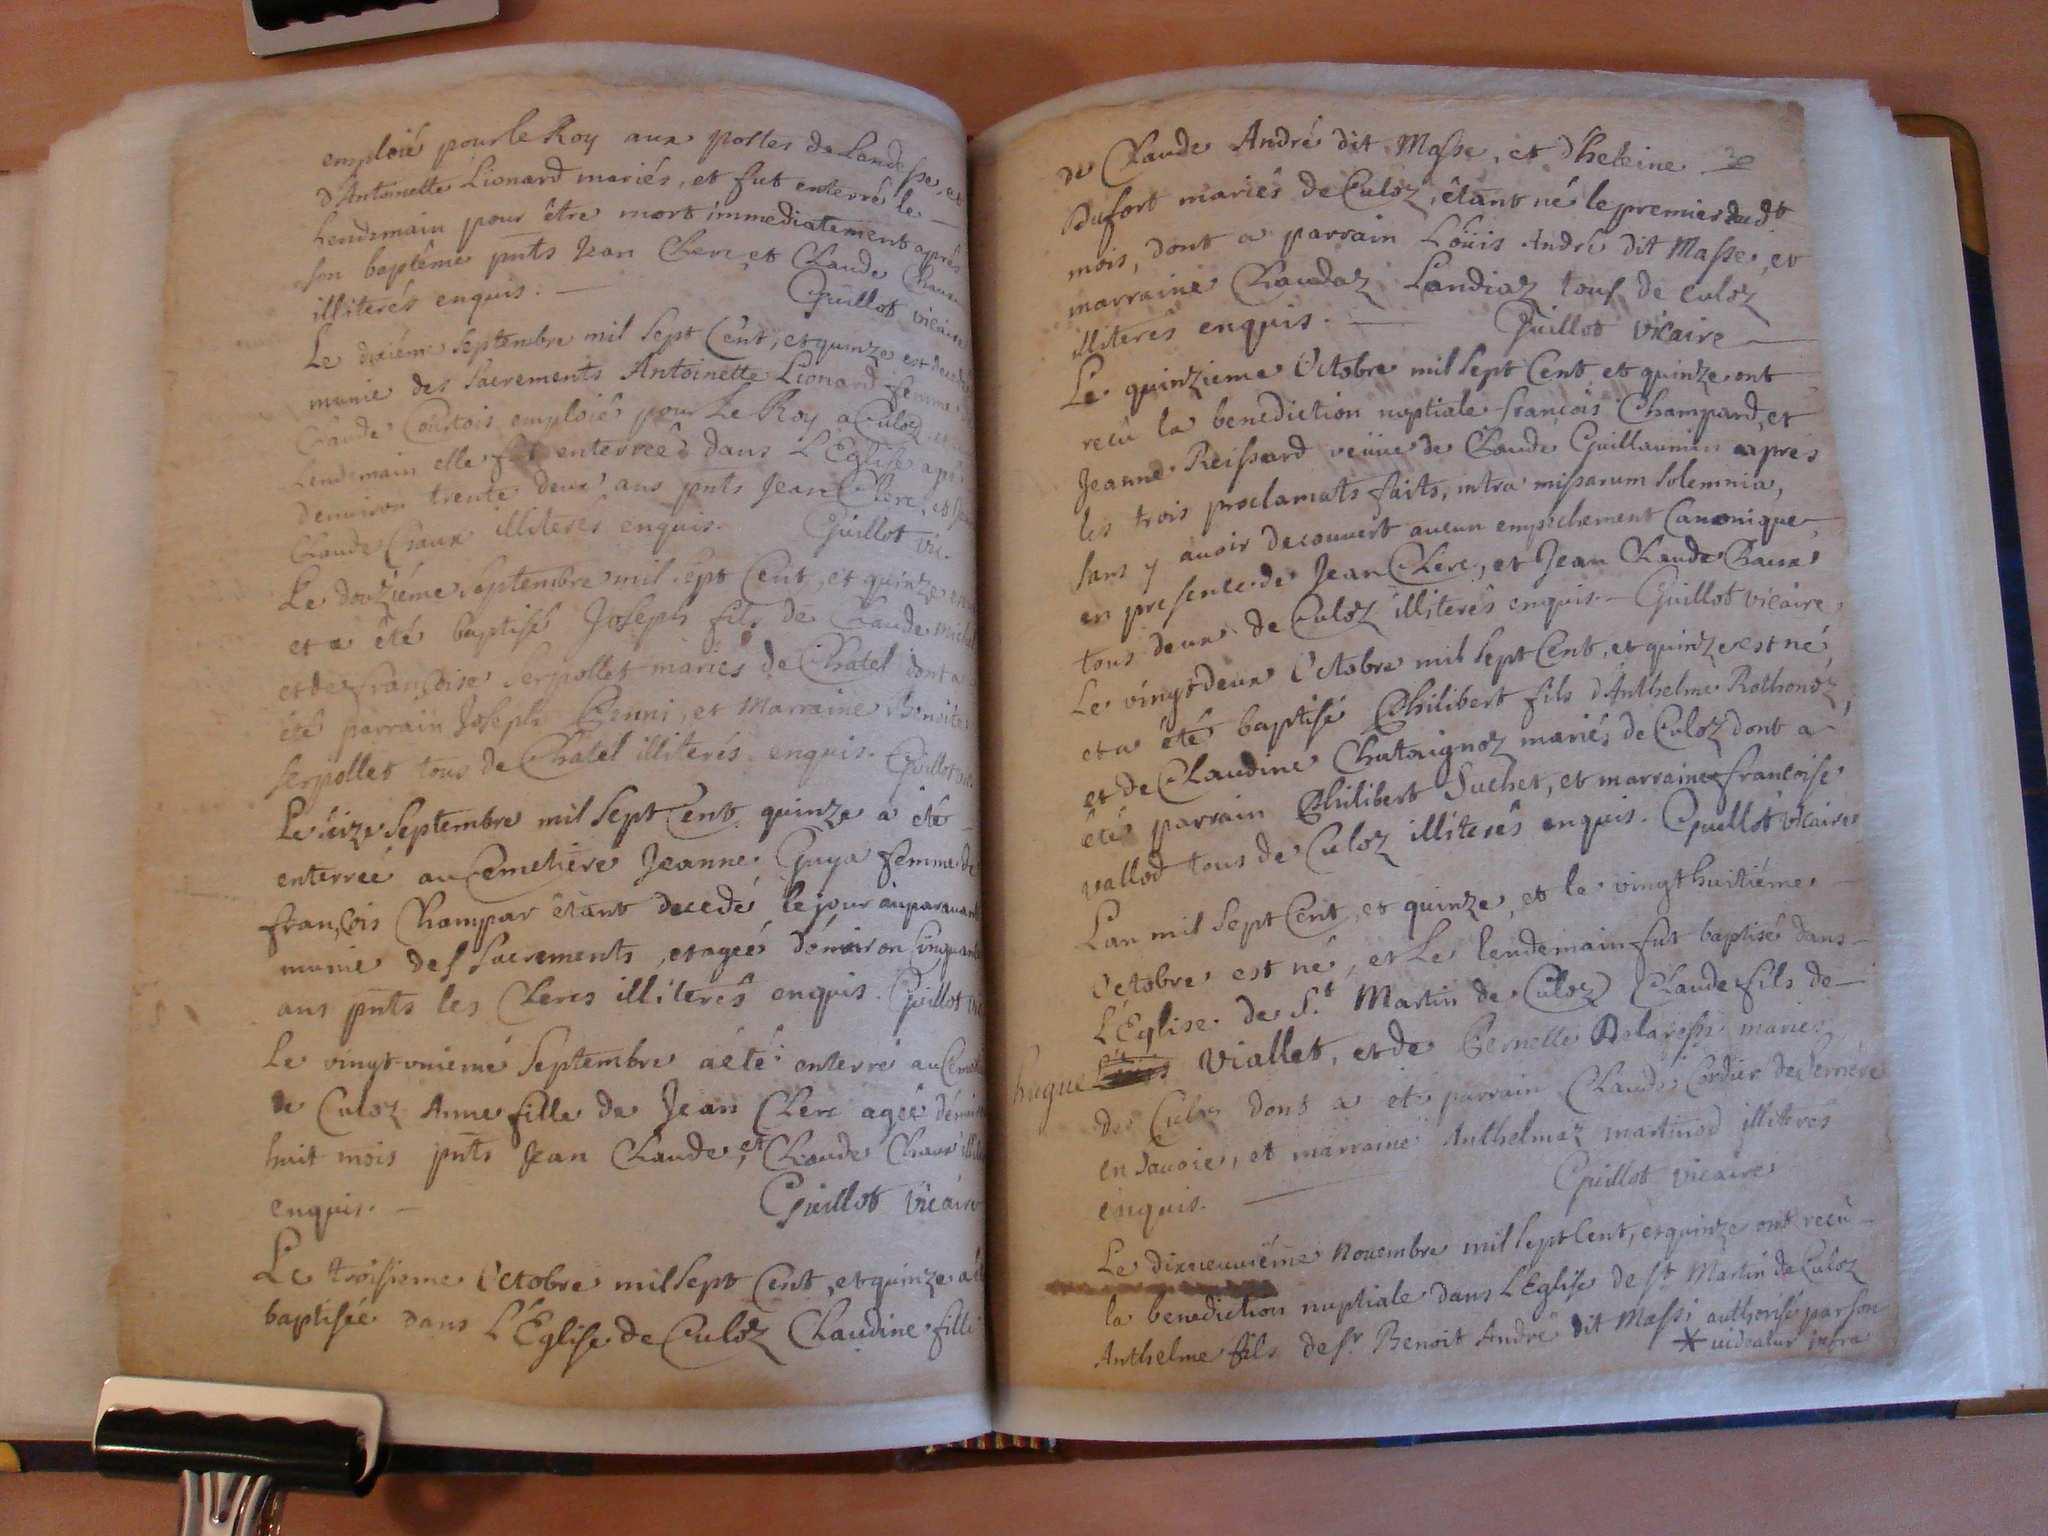 emploié pour le Roy aux postes de Landesse, et
d'Antoinette Lionard mariés, et fut enterré le
Lendemain pour être mort immediatement aprés
son baptême pnts Jean Clerc et Claude Chaux
illiterés enquis. Guillot vicaire
Le dixiéme septembre mil sept Cent, et quinze est decedée
munie des sacrements Antoinette Lionard femme de
Claude Courtois emploié pour Le Roy a Culoz et
Lendemain elle fut enterreé dans L'Eglise
denviron trente deux ans pnts Jean Clerc, et
Claude Chaux illiterés enquis. Guillot vic.
Le douziéme septembre mil sept Cent, et quinze
et a été baptisé Joseph fils de Claude Michel
et de françoise serpollet mariés de Chatel dont a
été parrain Joseph Genni, et Marraine Benoite
serpollet tous de Chatel illiterés enquis. Guillot
Le seize septembre mil sept Cent quinze a été
enterreé au Cemetière Jeanne Guya femme de
françois Champar étant decedé le jour auparavant
munie des sacrements, et ageé d'énviron Cinquante
ans pnts les Clercs illiterés enquis. Guillot vic
Le vingt-uniémé septembre a été enterré au
de Culoz Anne fille de Jean Clerc ageé
huit mois pnts Jean Claude, et Claude Chaux
enquis. Guillot vicaire
Le troisieme Octobre mil sept Cent, et quinze a été
baptisée dans L'Eglise de Culoz Claudine fille
de Claude André dit Masse, et d'heleine 30
Dufort mariés de Culoz, étant né le premier dudt
mois, dont a parrain Loüis André dit Masse, et
marraine Claudaz Landiaz tous de Culoz
illiterés enquis. Guillot vicaire
Le quinzieme Octobre mil sept Cent et quinze ont
recû la benediction nuptiale françois Champard, et
Jeanne Reissard veüve de Claude Guillaumin aprés
les trois proclamats faits, intra missarum solemnia,
sans y avoir decouvert aucun empechement Canonique
en presence de Jean Clerc, et Jean Claude Chaux
tous deux de Culoz illiterés enquis. Guillot vicaire
Le vingt deux Octobre mil sept Cent, et quinze est né,
et a été baptisé Philibert fils d'Anthelme Rothonoz,
et de Claudine Chataignoz mariés de Culoz dont a
été parrain Philibert Suchet, et marraine francoise
vallod tous de Culoz illiterés enquis. Guillot vicaire
Lan mil sept Cent, et quinze, et le vingt huitiéme
Octobre est né, et Le lendemain fut baptisé dans
L'Eglise de St Martin de Culoz Claude fils de
hugue Viallet, et de Pernelle mariés
de Culoz dont a été parrain Claude Cordier de Serriere
en Savoie, et marraine Anthelmaz martinod illiterés
enquis. Guillot vicaire
Le dixneuviéme Novembre mil sept Cent, et quinze ont recû
la benediction nuptiale dans L'Eglise de St Martin de Culoz
Anthelme fils de sr. Benoit André dit Massi authorisé par son
* videatur infra